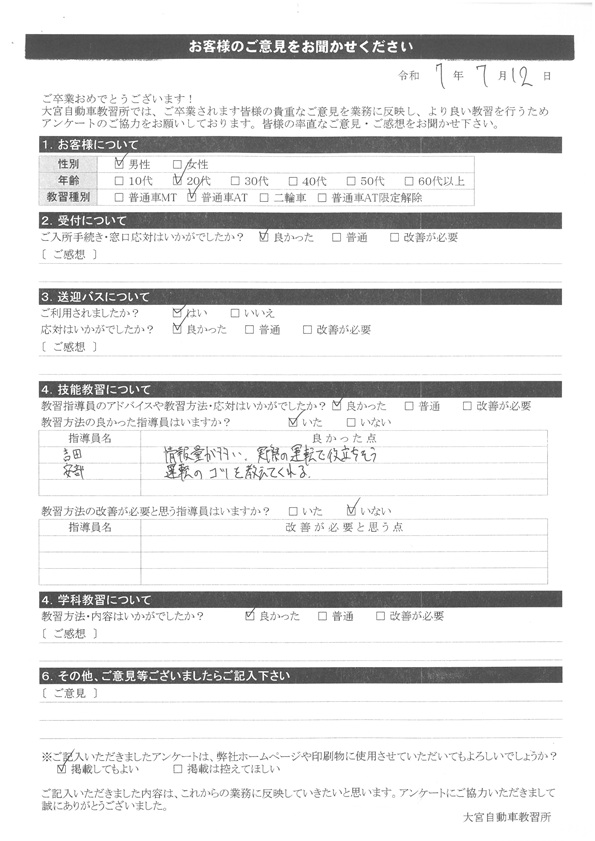 お客様のご意見をお聞かせください
令和 7 年 7 月 12 日
ご卒業おめでとうございます!
大宮自動車教習所では、ご卒業されます皆様の貴重なご意見を業務に反映し、より良い教習を行うため
アンケートのご協力をお願いしております。皆様の率直なご意見・ご感想をお聞かせ下さい。
1. お客様について
性別 ☑男性 □女性
年齢 □10代 ☑20代 □30代 □40代 □50代 □60代以上
教習種別 □普通車MT ☑普通車AT □二輪車 □普通車AT限定解除
2. 受付について
ご入所手続き・窓口応対はいかがでしたか? ☑良かった □普通 □改善が必要
[ ご感想 ]
3. 送迎バスについて
ご利用されましたか? ☑はい □いいえ
応対はいかがでしたか? ☑良かった □普通 □改善が必要
[ ご感想 ]
4. 技能教習について
教習指導員のアドバイスや教習方法・応対はいかがでしたか? ☑良かった □普通 □改善が必要
教習方法の良かった指導員はいますか? ☑いた □いない
指導員名 良かった点
吉田 情報量が多い、実際の運転で役立ちそう
安部 運転のコツを教えてくれる.
教習方法の改善が必要と思う指導員はいますか? □いた ☑いない
指導員名 改善が必要と思う点
4. 学科教習について
教習方法・内容はいかがでしたか? ☑良かった □普通 □改善が必要
[ ご感想 ]
6. その他、ご意見等ございましたらご記入下さい
[ ご意見 ]
※ご記入いただきましたアンケートは、弊社ホームページや印刷物に使用させていただいてもよろしいでしょうか?
☑掲載してもよい □掲載は控えてほしい
ご記入いただきました内容は、これからの業務に反映していきたいと思います。アンケートにご協力いただきまして
誠にありがとうございました。
大宮自動車教習所